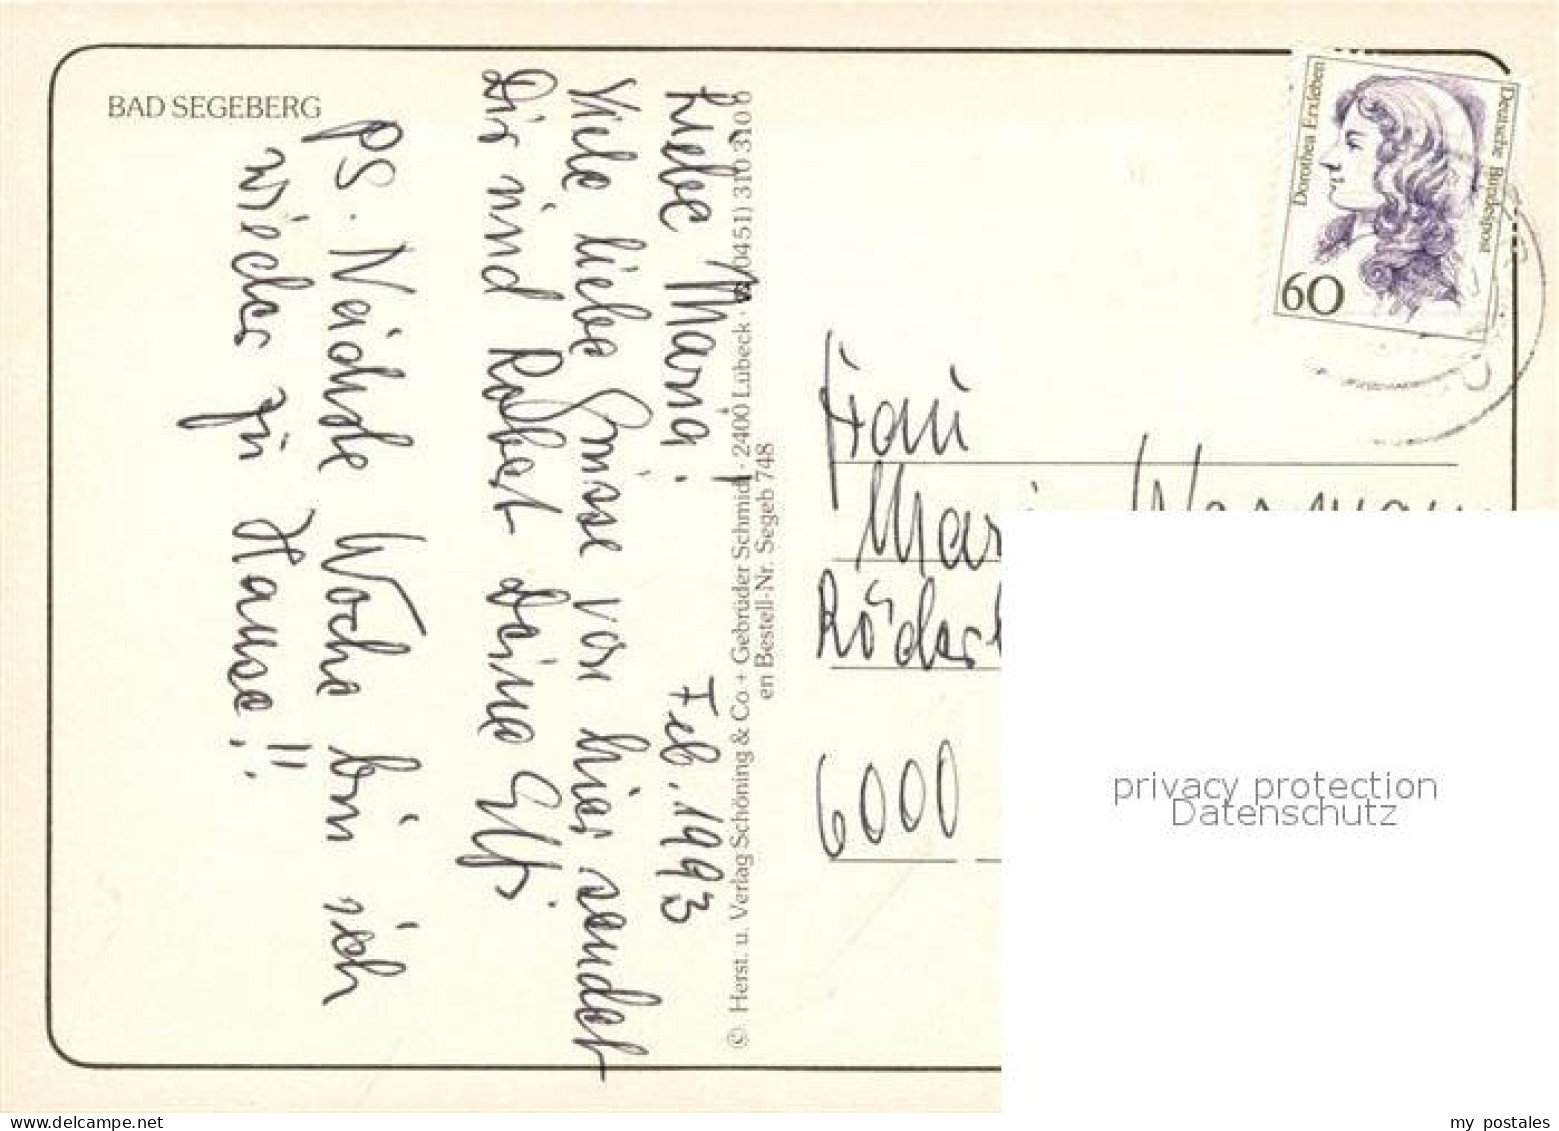 BAD SEGEBERG
Liebe Maria! Feb. 1993
Viele liebe Grüsse von hier sendet
Dir und Robert Deine Elfi
PS. Nächste Woche bin ich
wieder zu Hause!!
© Herst. u. Verlag Schöning & Co + Gebrüder Schmidt · 2400 Lübeck · (0451) 310 310 0
en Bestell-Nr. Segeb 748
Dorothea Erxleben
Deutsche Bundespost
60
Frau
6000
privacy protection
Datenschutz
delcampe.net
my_postales